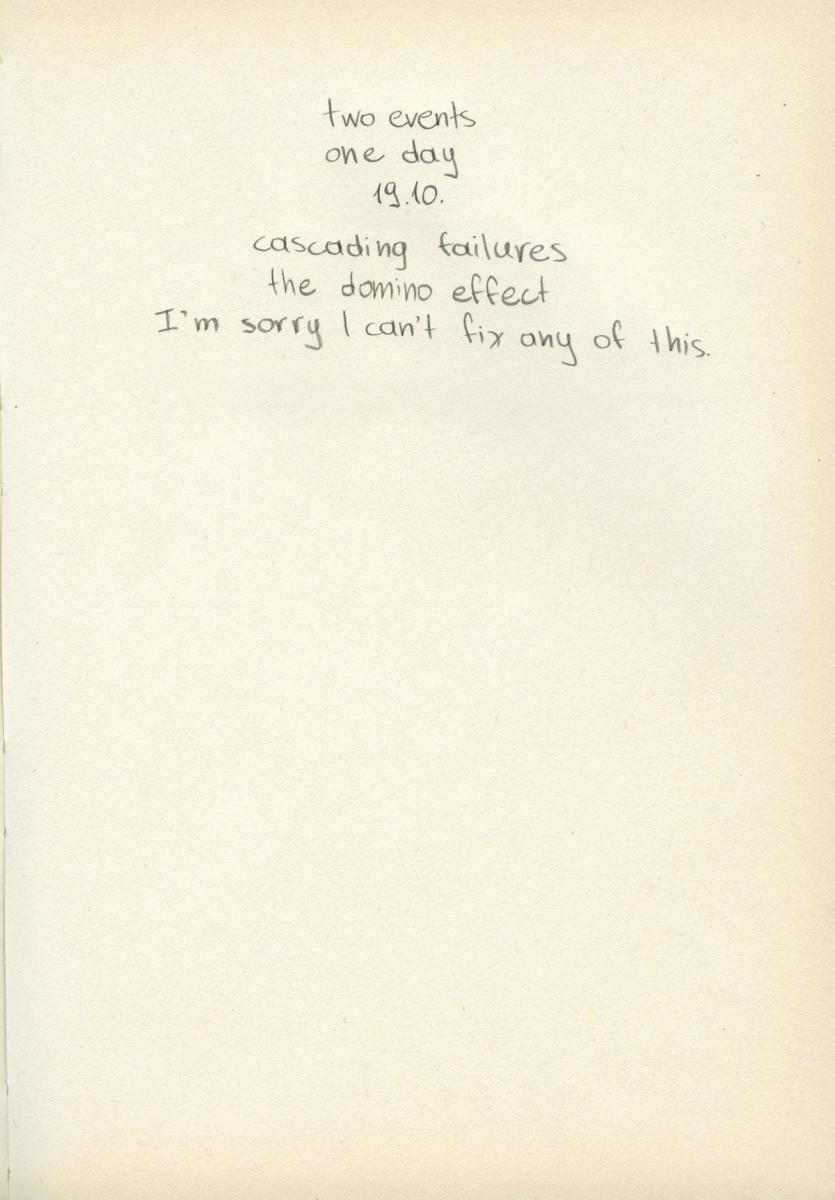 two events
one day
19.10.
cascading failures
the domino effect
I'm sorry I can't fix any of this.